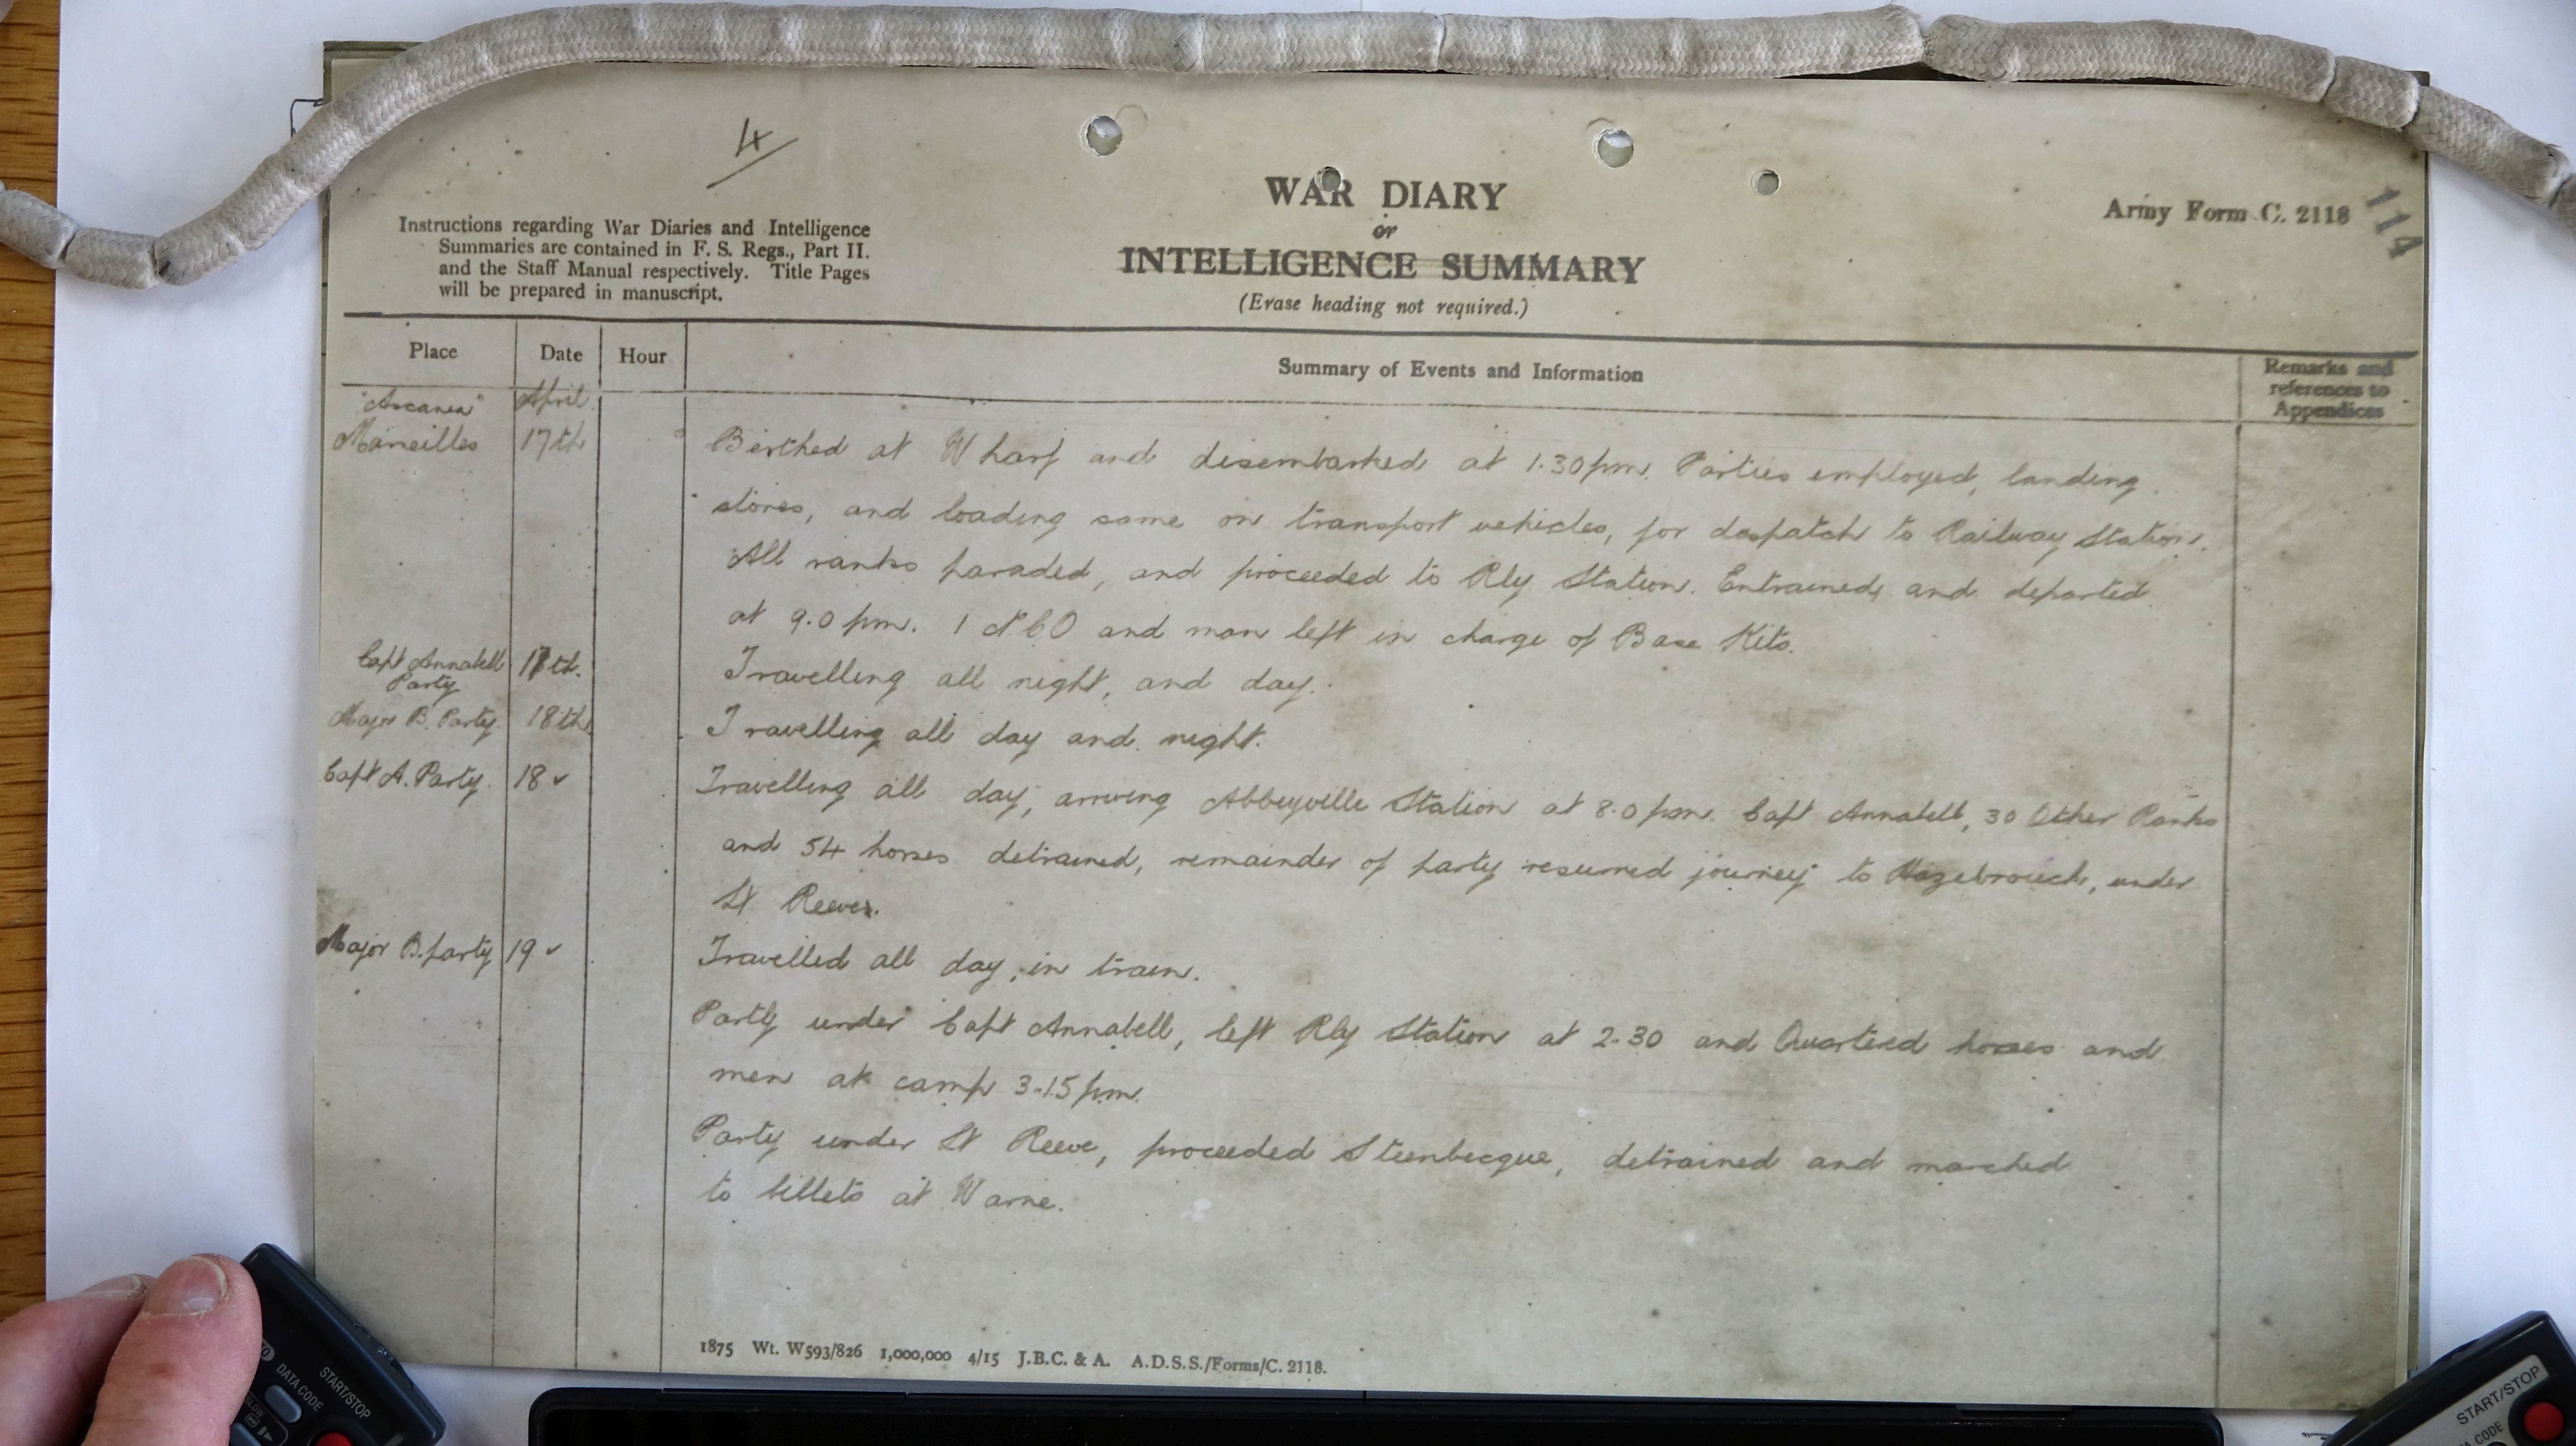 4
114
Instructions regarding War Diaries and Intelligence
Summaries are contained in F. S. Regs., Part II.
and the Staff Manual respectively. Title Pages
will be prepared in manuscript.
WAR DIARY
or
INTELLIGENCE SUMMARY
(Erase heading not required.)
Army Form C. 2118
Place Date Hour Summary of Events and Information Remarks and references to Appendices
"Ascania" April
Marseilles 17th Berthed at Wharf and disembarked at 1.30 pm. Parties employed, landing
stores, and loading same on transport vehicles, for despatch to Railway Station.
All ranks paraded, and proceeded to Rly Station. Entrained, and departed
at 9.0 pm. 1 NCO and man left in charge of Base Kits.
Capt Annabell Party 17th. Travelling all night, and day.
Major B. Party 18th Travelling all day and night.
Capt A. Party 18 Travelling all day, arriving Abbeyville Station at 8.0 pm. Capt Annabell, 30 Other Ranks
and 54 horses detrained, remainder of party resumed journey to Hazebrouck, under
Lt Reeves.
Major B. party 19 Travelled all day, in train.
Party under Capt Annabell, left Rly Station at 2-30 and Quartered horses and
men at camp 3-15 pm.
Party under Lt Reeve, proceeded Steenbecque, detrained and marched
to billets at Warne.
1875 Wt. W593/826 1,000,000 4/15 J.B.C. & A. A.D.S.S./Forms/C. 2118.
DATA CODE
START/STOP
START/STOP